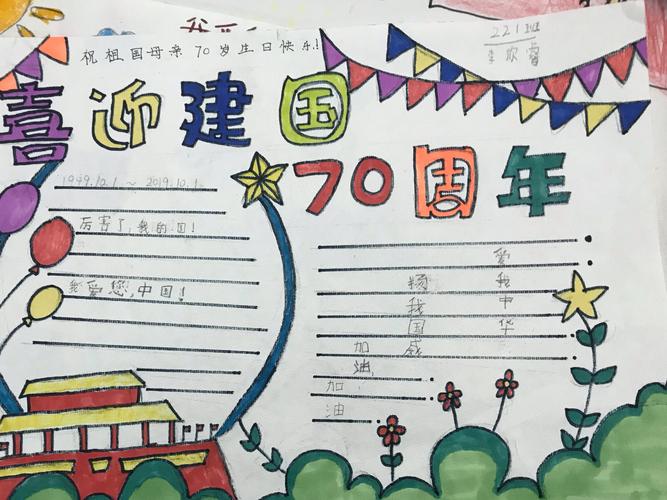 祝祖国母亲70岁生日快乐!
221班
喜迎建国
70周年
1949.10.1 ~ 2019.10.1
厉害了,我的国!
我爱您,中国!
爱我中华
扬我国感
加油
加油